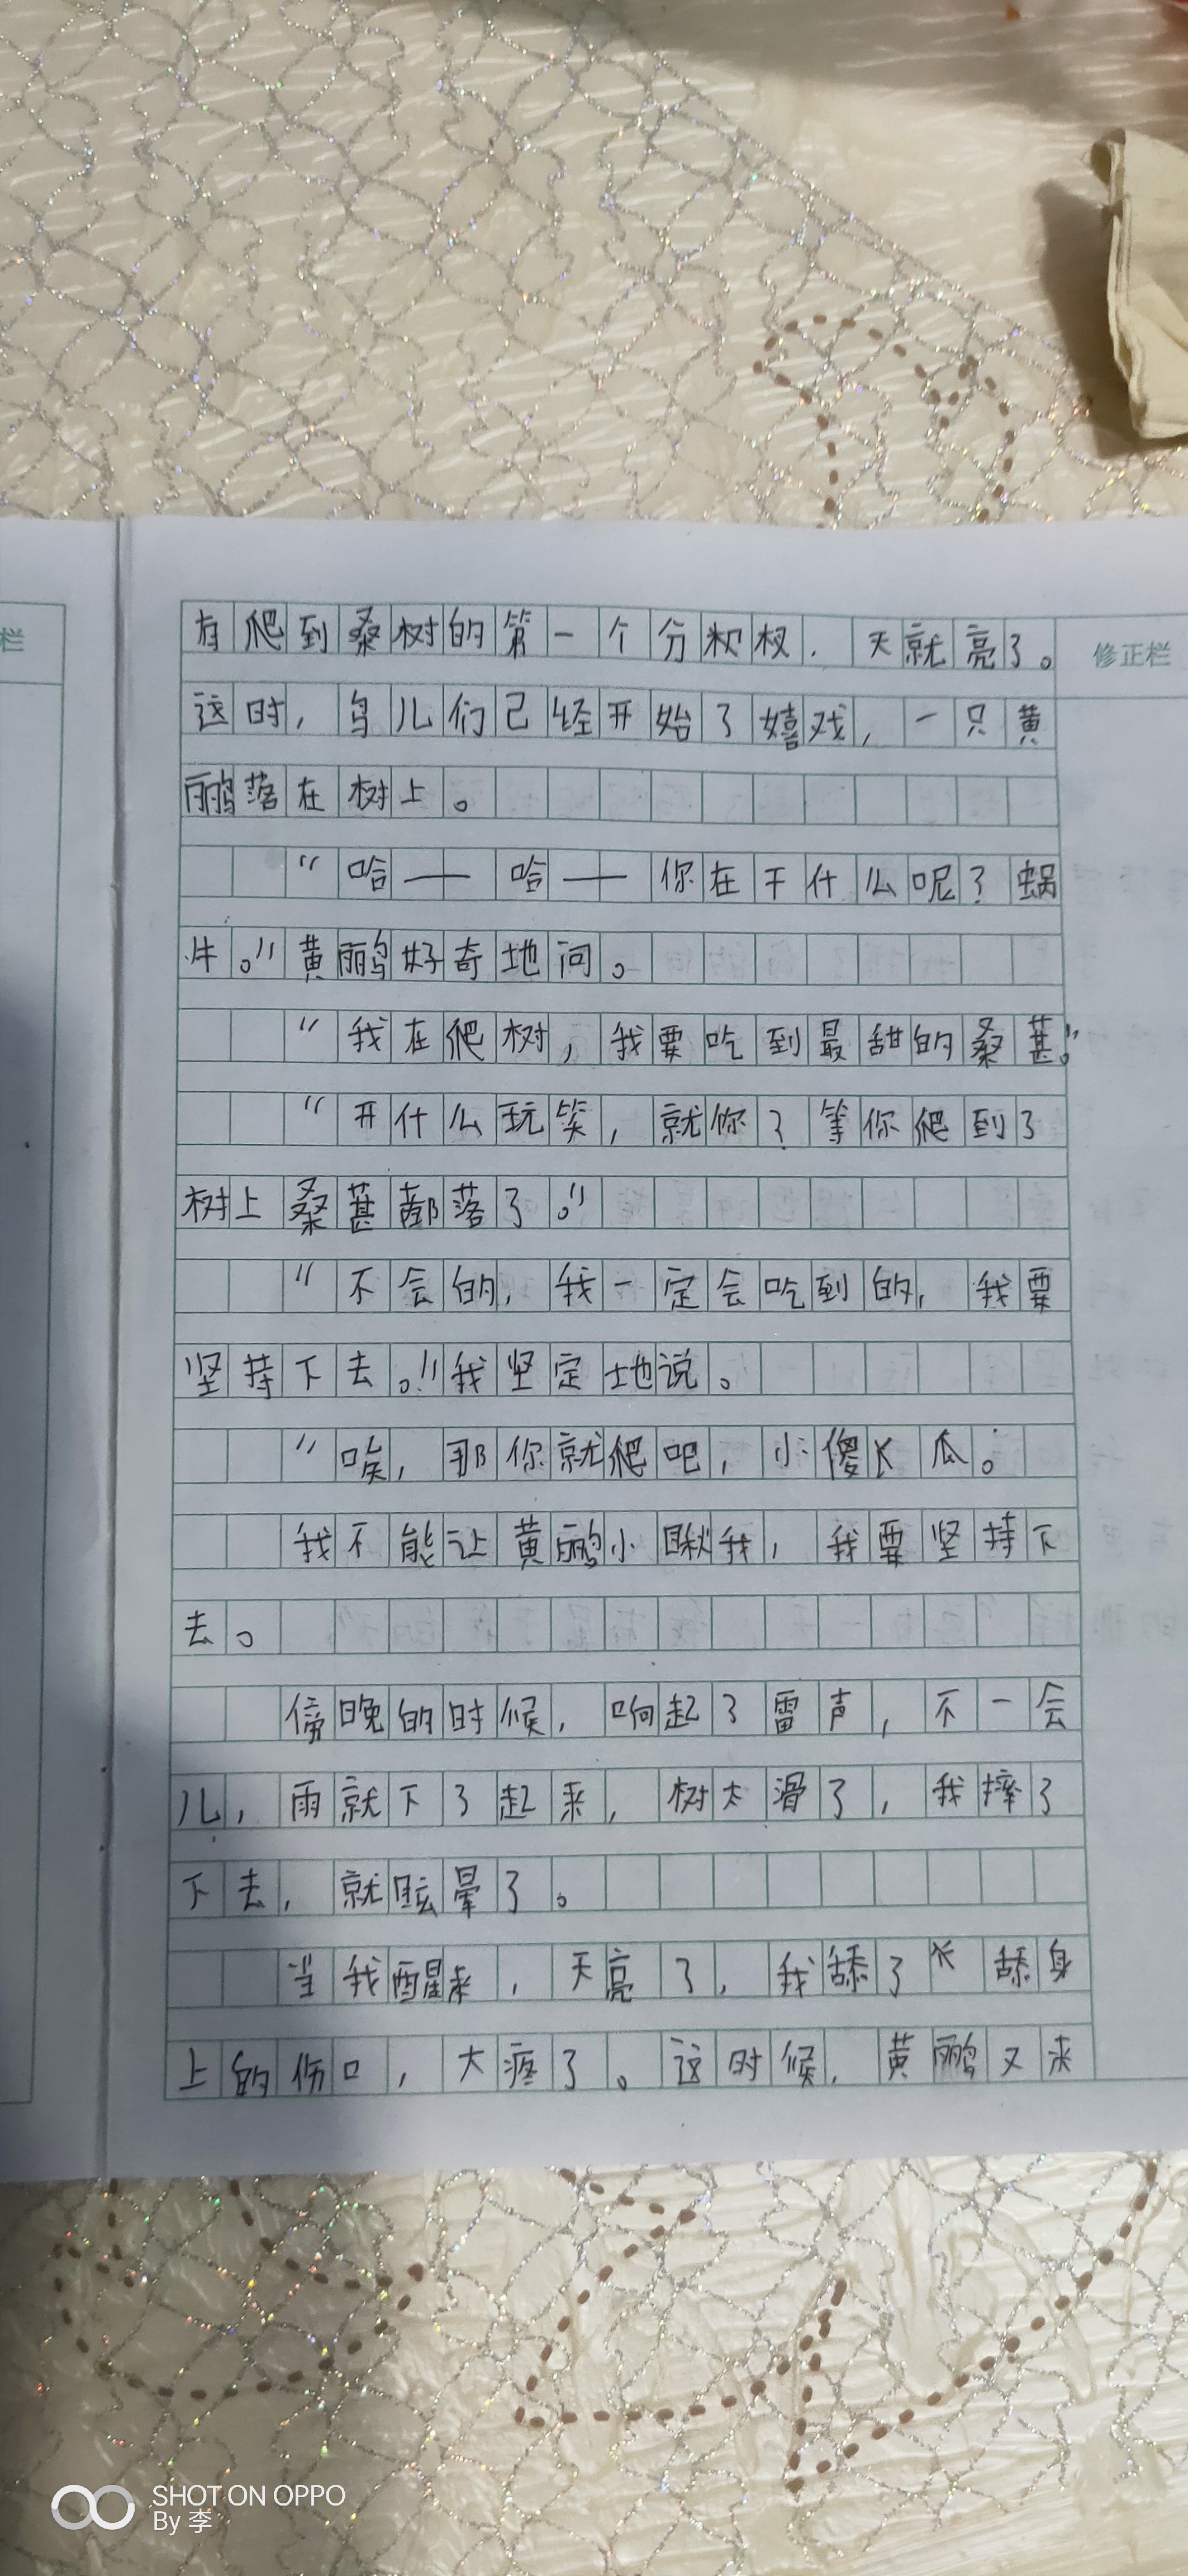 栏
修正栏
有爬到桑树的第一个分积杈.天就亮了。
这时,鸟儿们已经开始了嬉戏,一只黄
鹂落在树上。
“哈——哈——你在干什么呢?蜗
牛。”黄鹂好奇地问。
“我在爬树,我要吃到最甜的桑葚。”
“开什么玩笑,就你?等你爬到了
树上桑葚都落了。”
“不会的,我一定会吃到的,我要
坚持下去。”我坚定地说。
“唉,那你就爬吧,小傻瓜。
我不能让黄鹂小瞅我,我要坚持下
去。
傍晚的时候,响起了雷声,不一会
儿,雨就下了起来,树太滑了,我摔了
下去,就眩晕了。
当我醒来,天亮了,我舔了舔身
上的伤口,大疼了。这时候,黄鹂又来
SHOT ON OPPO
By 李